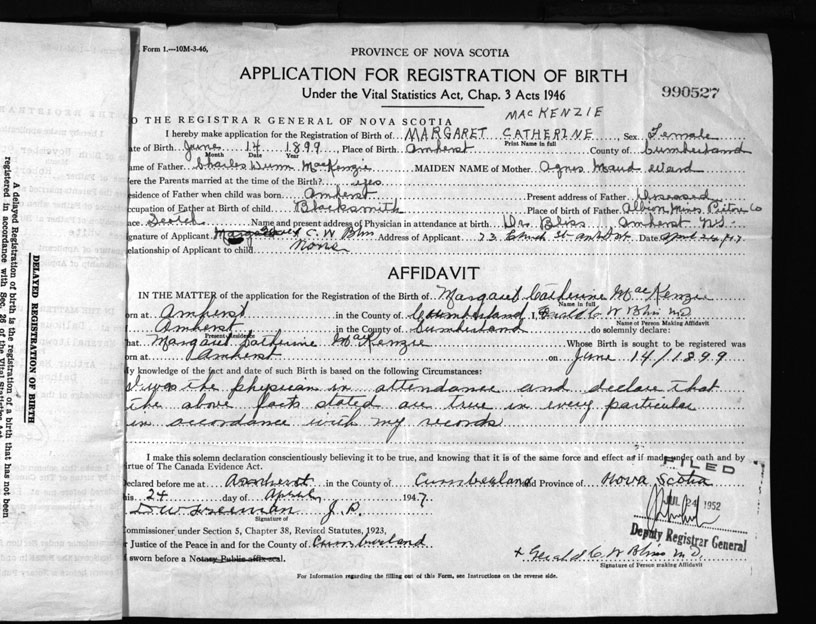 Form 1.—10M-3-46.
PROVINCE OF NOVA SCOTIA
APPLICATION FOR REGISTRATION OF BIRTH
Under the Vital Statistics Act, Chap. 3 Acts 1946
990527
O THE REGISTRAR GENERAL OF NOVA SCOTIA
MACKENZIE
I hereby make application for the Registration of Birth of MARGARET CATHERINE Sex Female
Print Name in full
ate of Birth June 14 1899 Place of Birth Amherst County of Cumberland
Month Date Year
ame of Father Charles Dunn MacKenzie MAIDEN NAME of Mother Agnes Maud Ward
ere the Parents married at the time of Birth? yes
esidence of Father when child was born Amherst Present address of Father Deceased
ccupation of Father at Birth of child Blacksmith Place of birth of Father Albion Mines Pictou Co
ace Scotch Name and present address of Physician in attendance at birth Drs Bliss Amherst NS.
ignature of Applicant C. W Bliss Address of Applicant 73 Church St Amherst Date April 24/47
elationship of Applicant to child None
AFFIDAVIT
IN THE MATTER of the application for the Registration of the Birth of Margaret Catherine MacKenzie
Name in full
orn at Amherst in the County of Cumberland I, Gerald C W Bliss MD
Name of Person Making Affidavit
Amherst in the County of Cumberland do solemnly declare:
Present Residence
hat Margaret Catherine MacKenzie Whose Birth is sought to be registered was
orn at Amherst on June 14/1899
My knowledge of the fact and date of such Birth is based on the following Circumstances:
I was the physican in attendance and declare that
the above facts stated are true in every particular
in accordance with my records
I make this solemn declaration conscientiously believing it to be true, and knowing that it is of the same force and effect as if made under oath and by
irtue of The Canada Evidence Act.
FILED
eclared before me at Amherst in the County of Cumberland and Province of Nova Scotia
his 24 day of April 1947.
JUL 24 1952
D W Freeman J. P.
Signature of
Deputy Registrar General
ommissioner under Section 5, Chapter 38, Revised Statutes, 1923,
r Justice of the Peace in and for the County of Cumberland
sworn before a Notary Public affix seal.
x Gerald C W Bliss M D.
Signature of Person making Affidavit
For Information regarding the filling out of this Form, see Instructions on the reverse side.
DELAYED REGISTRATION OF BIRTH
A delayed Registration of birth is the registration of a birth that has not been
registered in accordance with Sec. 26 of the Vital Statistics Act